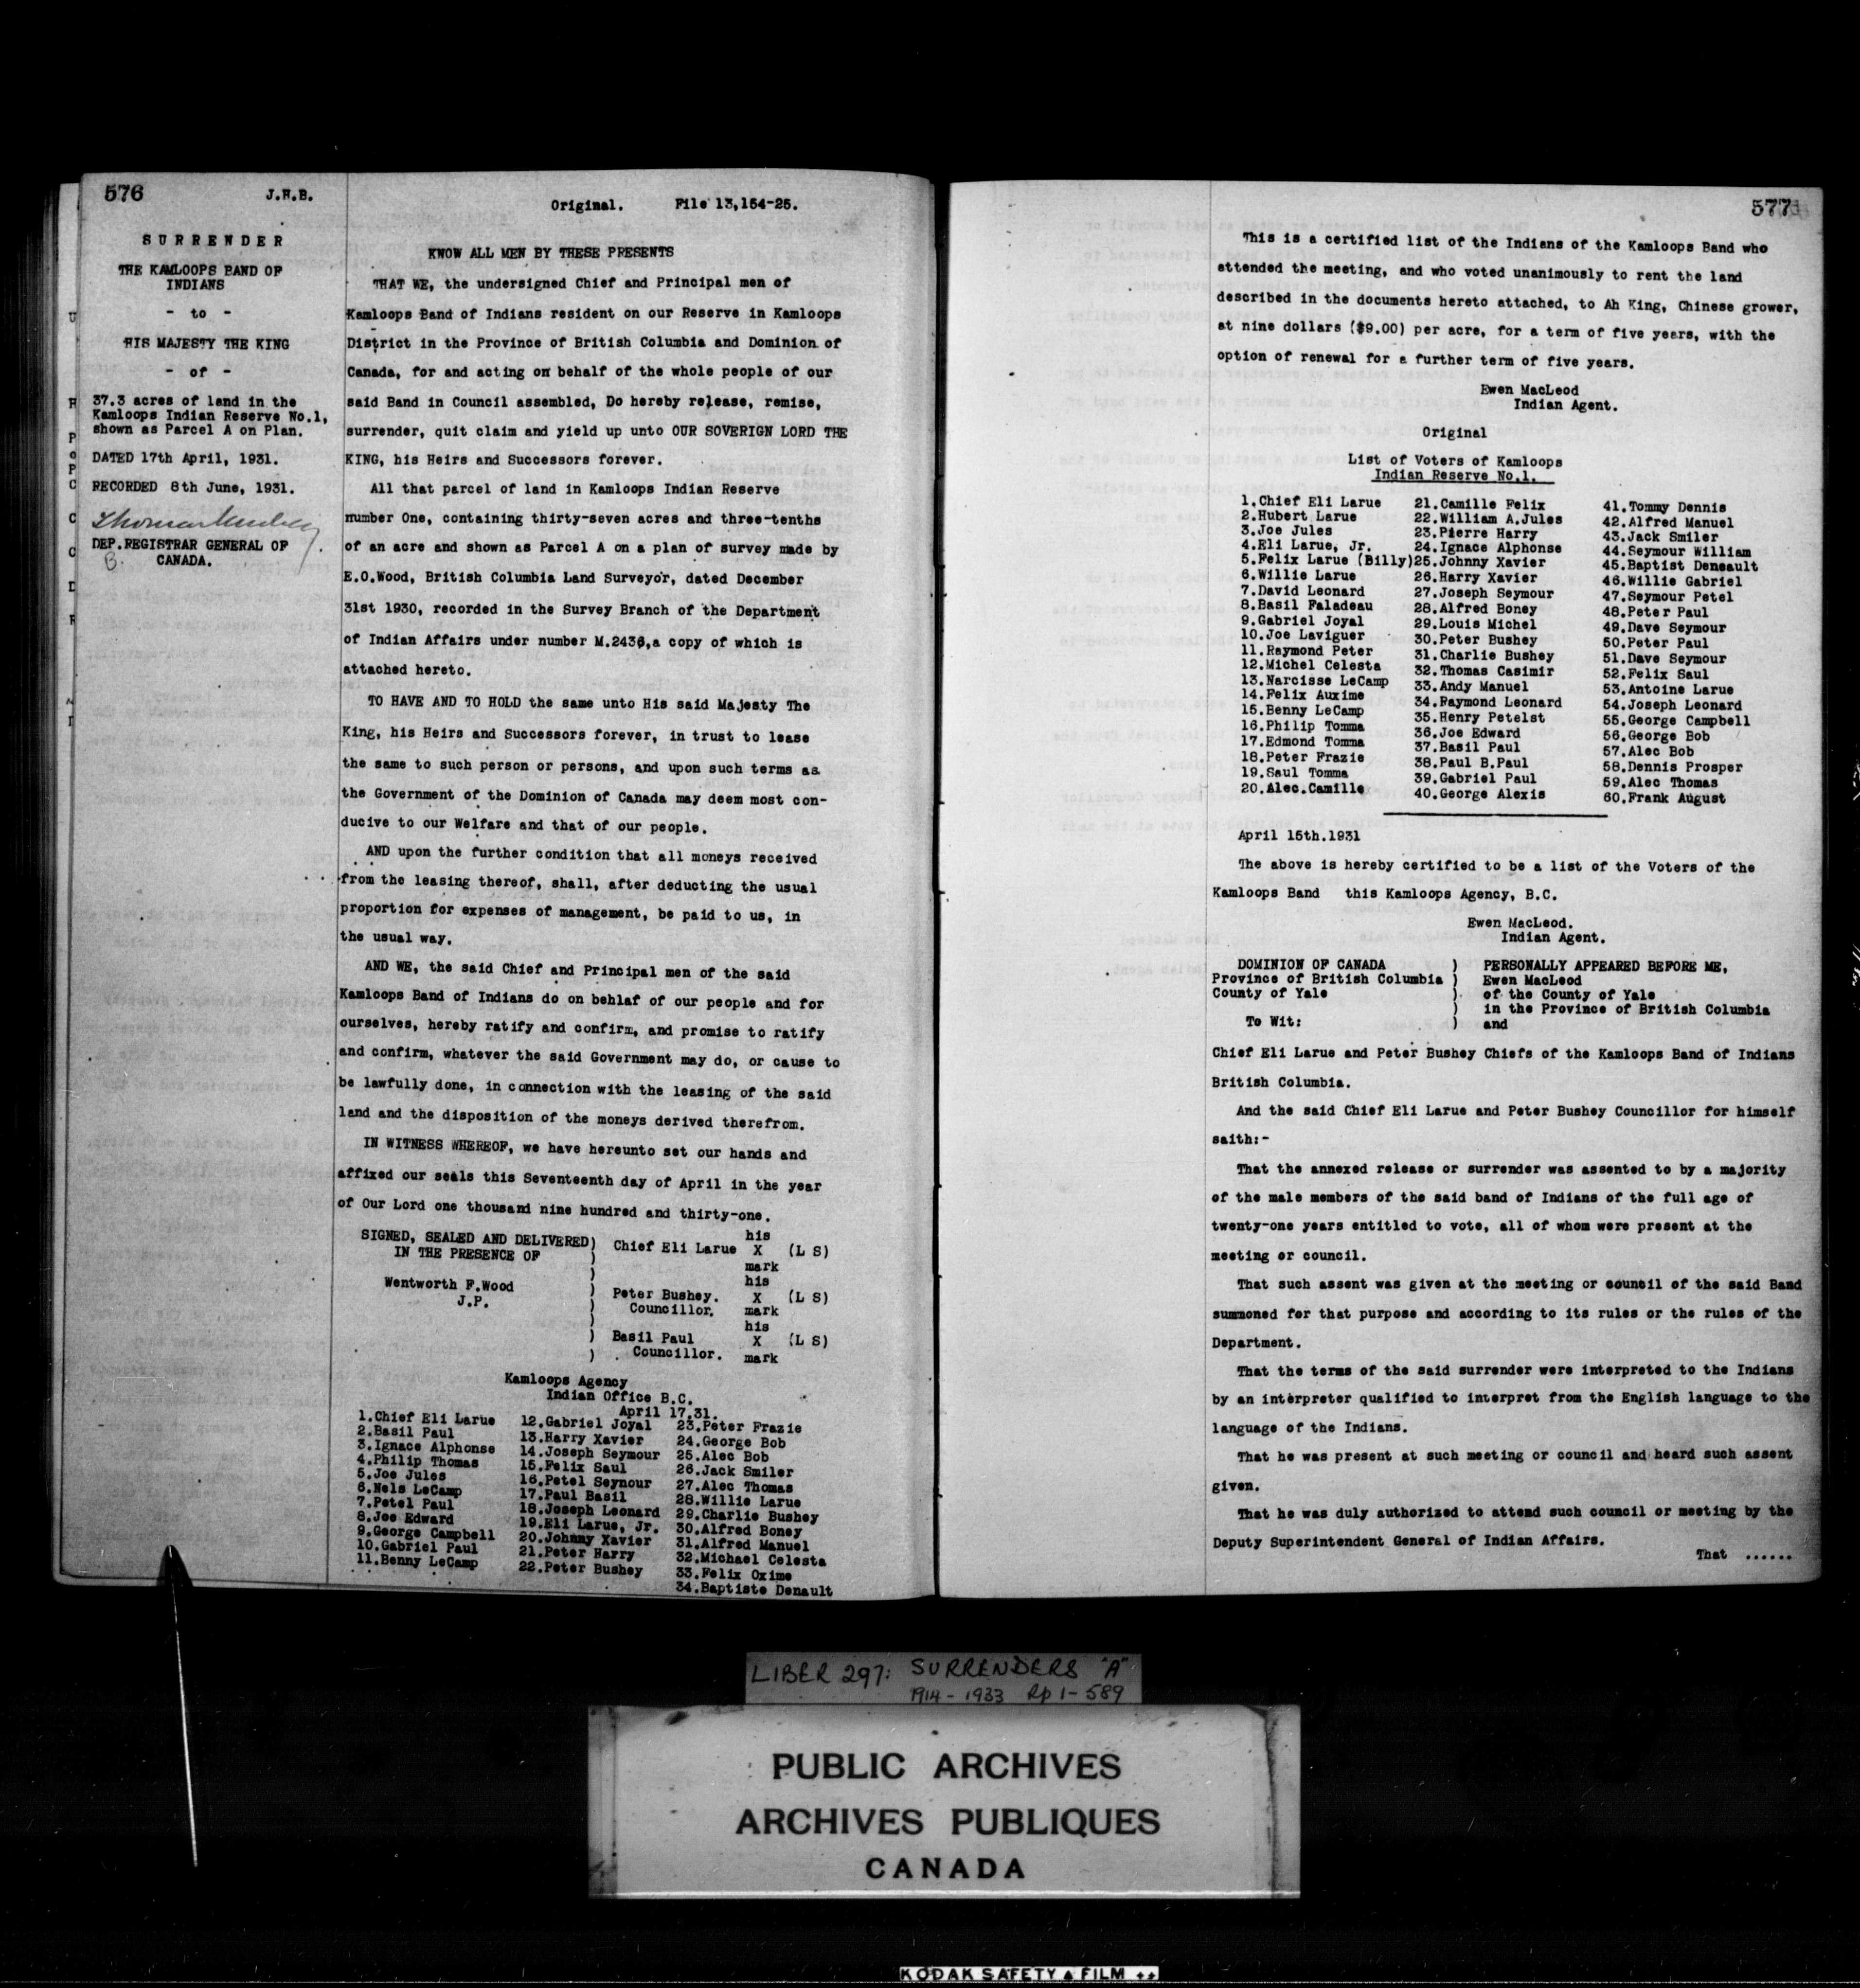 576
J.W.B.
SURRENDER
THE KAMLOOPS BAND OF
INDIANS
- to -
HIS MAJESTY THE KING
- of -
37.3 acres of land in the
Kamloops Indian Reserve No.1,
shown as Parcel A on Plan.
DATED 17th April, 1931.
RECORDED 8th June, 1931.
DEP.REGISTRAR GENERAL OF
CANADA.
Original. File 13,154-25.
KNOW ALL MEN BY THESE PRESENTS
THAT WE, the undersigned Chief and Principal men of
Kamloops Band of Indians resident on our Reserve in Kamloops
District in the Province of British Columbia and Dominion of
Canada, for and acting on behalf of the whole people of our
said Band in Council assembled, Do hereby release, remise,
surrender, quit claim and yield up unto OUR SOVERIGN LORD THE
KING, his Heirs and Successors forever.
All that parcel of land in Kamloops Indian Reserve
number One, containing thirty-seven acres and three-tenths
of an acre and shown as Parcel A on a plan of survey made by
E.O.Wood, British Columbia Land Surveyor, dated December
31st 1930, recorded in the Survey Branch of the Department
of Indian Affairs under number M.2436,a copy of which is
attached hereto.
TO HAVE AND TO HOLD the same unto His said Majesty The
King, his Heirs and Successors forever, in trust to lease
the same to such person or persons, and upon such terms as
the Government of the Dominion of Canada may deem most con-
ducive to our Welfare and that of our people.
AND upon the further condition that all moneys received
from the leasing thereof, shall, after deducting the usual
proportion for expenses of management, be paid to us, in
the usual way.
AND WE, the said Chief and Principal men of the said
Kamloops Band of Indians do on behlaf of our people and for
ourselves, hereby ratify and confirm, and promise to ratify
and confirm, whatever the said Government may do, or cause to
be lawfully done, in connection with the leasing of the said
land and the disposition of the moneys derived therefrom.
IN WITNESS WHEREOF, we have hereunto set our hands and
affixed our seals this Seventeenth day of April in the year
of Our Lord one thousand nine hundred and thirty-one.
SIGNED, SEALED AND DELIVERED)
IN THE PRESENCE OF )
Wentworth F.Wood
J.P.
his
Chief Eli Larue X (L S)
mark
his
Peter Bushey. X (L S)
Councillor. mark
his
Basil Paul X (L S)
Councillor. mark
Kamloops Agency
Indian Office B.C.
April 17,31.
1.Chief Eli Larue
2.Basil Paul
3.Ignace Alphonse
4.Philip Thomas
5.Joe Jules
6.Nels LeCamp
7.Petel Paul
8.Joe Edward
9.George Campbell
10.Gabriel Paul
11.Benny LeCamp
12.Gabriel Joyal
13.Harry Xavier
14.Joseph Seymour
15.Felix Saul
16.Petel Seynour
17.Paul Basil
18.Joseph Leonard
19.Eli Larue, Jr.
20.Johnny Xavier
21.Peter Harry
22.Peter Bushey
23.Peter Frazie
24.George Bob
25.Alec Bob
26.Jack Smiler
27.Alec Thomas
28.Willie Larue
29.Charlie Bushey
30.Alfred Boney
31.Alfred Manuel
32.Michael Celesta
33.Felix Oxime
34.Baptiste Denault
577
This is a certified list of the Indians of the Kamloops Band who
attended the meeting, and who voted unanimously to rent the land
described in the documents hereto attached, to Ah King, Chinese grower,
at nine dollars ($9.00) per acre, for a term of five years, with the
option of renewal for a further term of five years.
Ewen MacLeod
Indian Agent.
Original
List of Voters of Kamloops
Indian Reserve No.1.
1.Chief Eli Larue
2.Hubert Larue
3.Joe Jules
4.Eli Larue, Jr.
5.Felix Larue (Billy)
6.Willie Larue
7.David Leonard
8.Basil Faladeau
9.Gabriel Joyal
10.Joe Laviguer
11.Raymond Peter
12.Michel Celesta
13.Narcisse LeCamp
14.Felix Auxime
15.Benny LeCamp
16.Philip Tomma
17.Edmond Tomma
18.Peter Frazie
19.Saul Tomma
20.Alec.Camille
21.Camille Felix
22.William A.Jules
23.Pierre Harry
24.Ignace Alphonse
25.Johnny Xavier
26.Harry Xavier
27.Joseph Seymour
28.Alfred Boney
29.Louis Michel
30.Peter Bushey
31.Charlie Bushey
32.Thomas Casimir
33.Andy Manuel
34.Raymond Leonard
35.Henry Petelst
36.Joe Edward
37.Basil Paul
38.Paul B.Paul
39.Gabriel Paul
40.George Alexis
41.Tommy Dennis
42.Alfred Manuel
43.Jack Smiler
44.Seymour William
45.Baptist Deneault
46.Willie Gabriel
47.Seymour Petel
48.Peter Paul
49.Dave Seymour
50.Peter Paul
51.Dave Seymour
52.Felix Saul
53.Antoine Larue
54.Joseph Leonard
55.George Campbell
56.George Bob
57.Alec Bob
58.Dennis Prosper
59.Alec Thomas
60.Frank August
April 15th.1931
The above is hereby certified to be a list of the Voters of the
Kamloops Band this Kamloops Agency, B.C.
Ewen MacLeod.
Indian Agent.
DOMINION OF CANADA ) PERSONALLY APPEARED BEFORE ME,
Province of British Columbia ) Ewen MacLeod
County of Yale ) of the County of Yale
) in the Province of British Columbia
To Wit: ) and
Chief Eli Larue and Peter Bushey Chiefs of the Kamloops Band of Indians
British Columbia.
And the said Chief Eli Larue and Peter Bushey Councillor for himself
saith:-
That the annexed release or surrender was assented to by a majority
of the male members of the said band of Indians of the full age of
twenty-one years entitled to vote, all of whom were present at the
meeting or council.
That such assent was given at the meeting or council of the said Band
summoned for that purpose and according to its rules or the rules of the
Department.
That the terms of the said surrender were interpreted to the Indians
by an interpreter qualified to interpret from the English language to the
language of the Indians.
That he was present at such meeting or council and heard such assent
given.
That he was duly authorized to attend such council or meeting by the
Deputy Superintendent General of Indian Affairs.
That ......
LIBER 297: SURRENDERS "A"
1914-1933 Rp 1-589
PUBLIC ARCHIVES
ARCHIVES PUBLIQUES
CANADA
KODAK SAFETY FILM